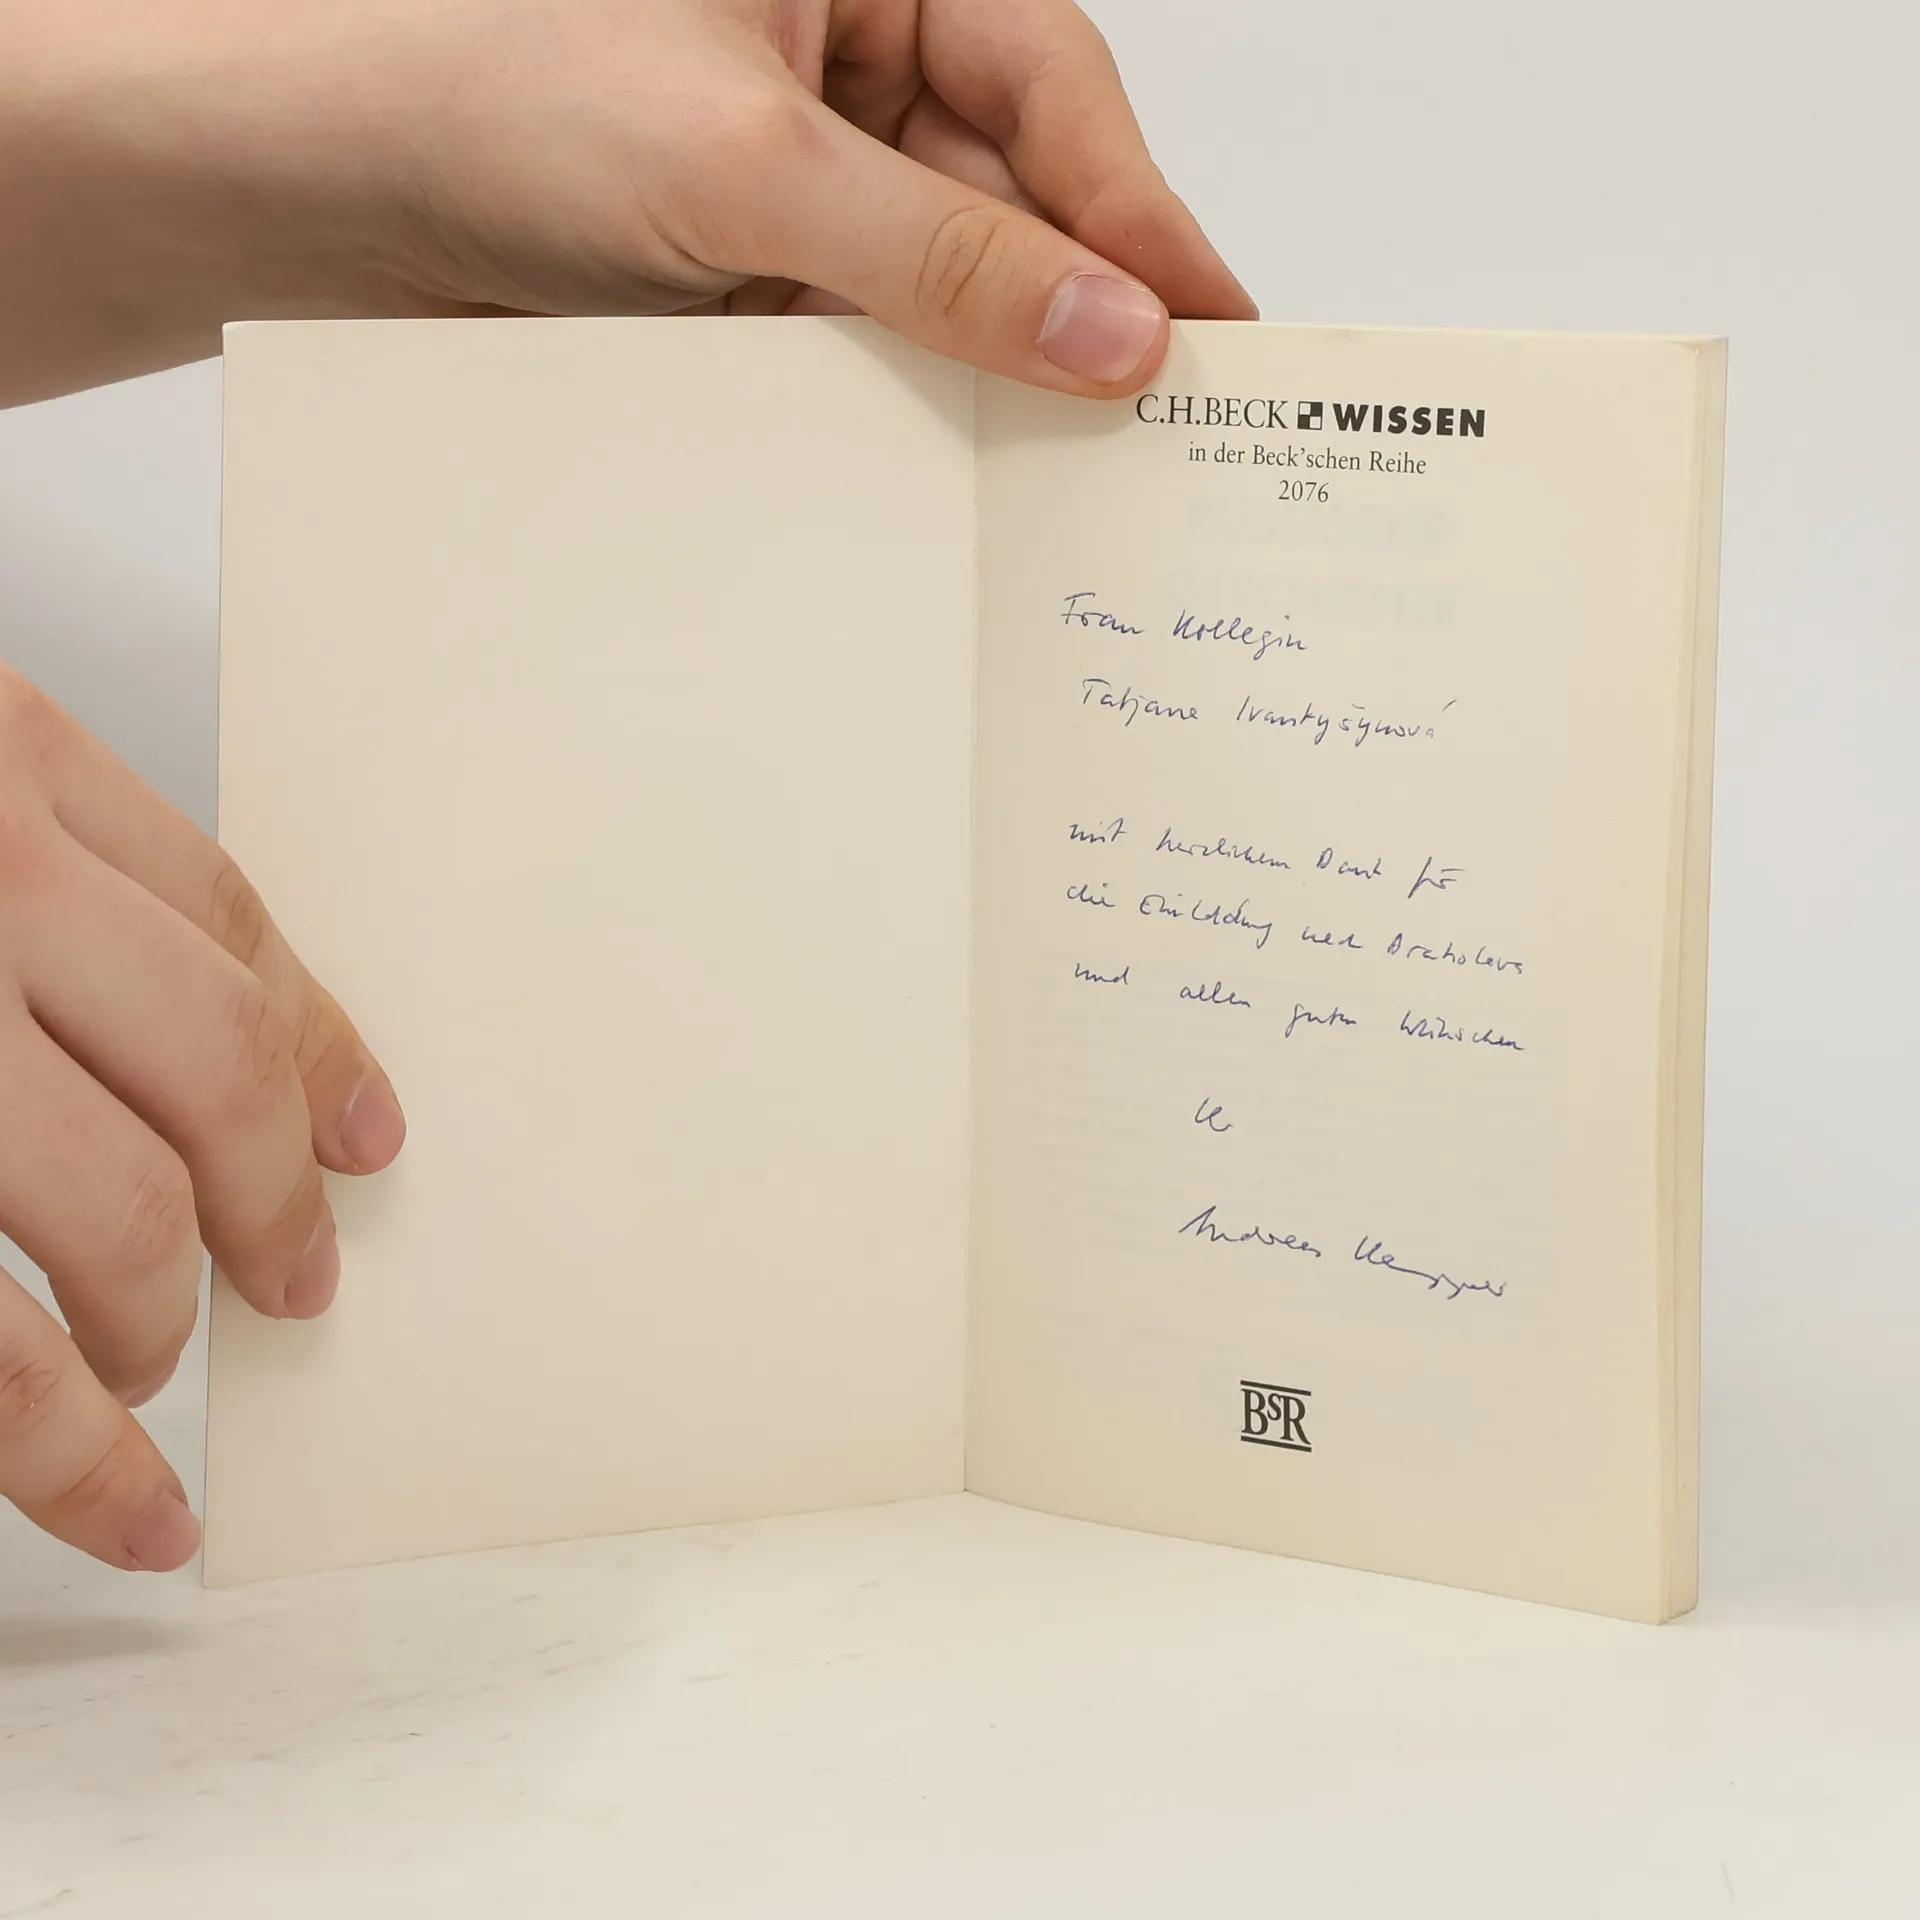 C.H.BECK WISSEN
in der Beck'schen Reihe
2076
Frau Kollegin
Tatjane Ivantyšynová
mit herzlichem Dank für
die Einladung nach Bratislava
und allen guten Wünschen
Ihr
Andreas Kappeler
BSR